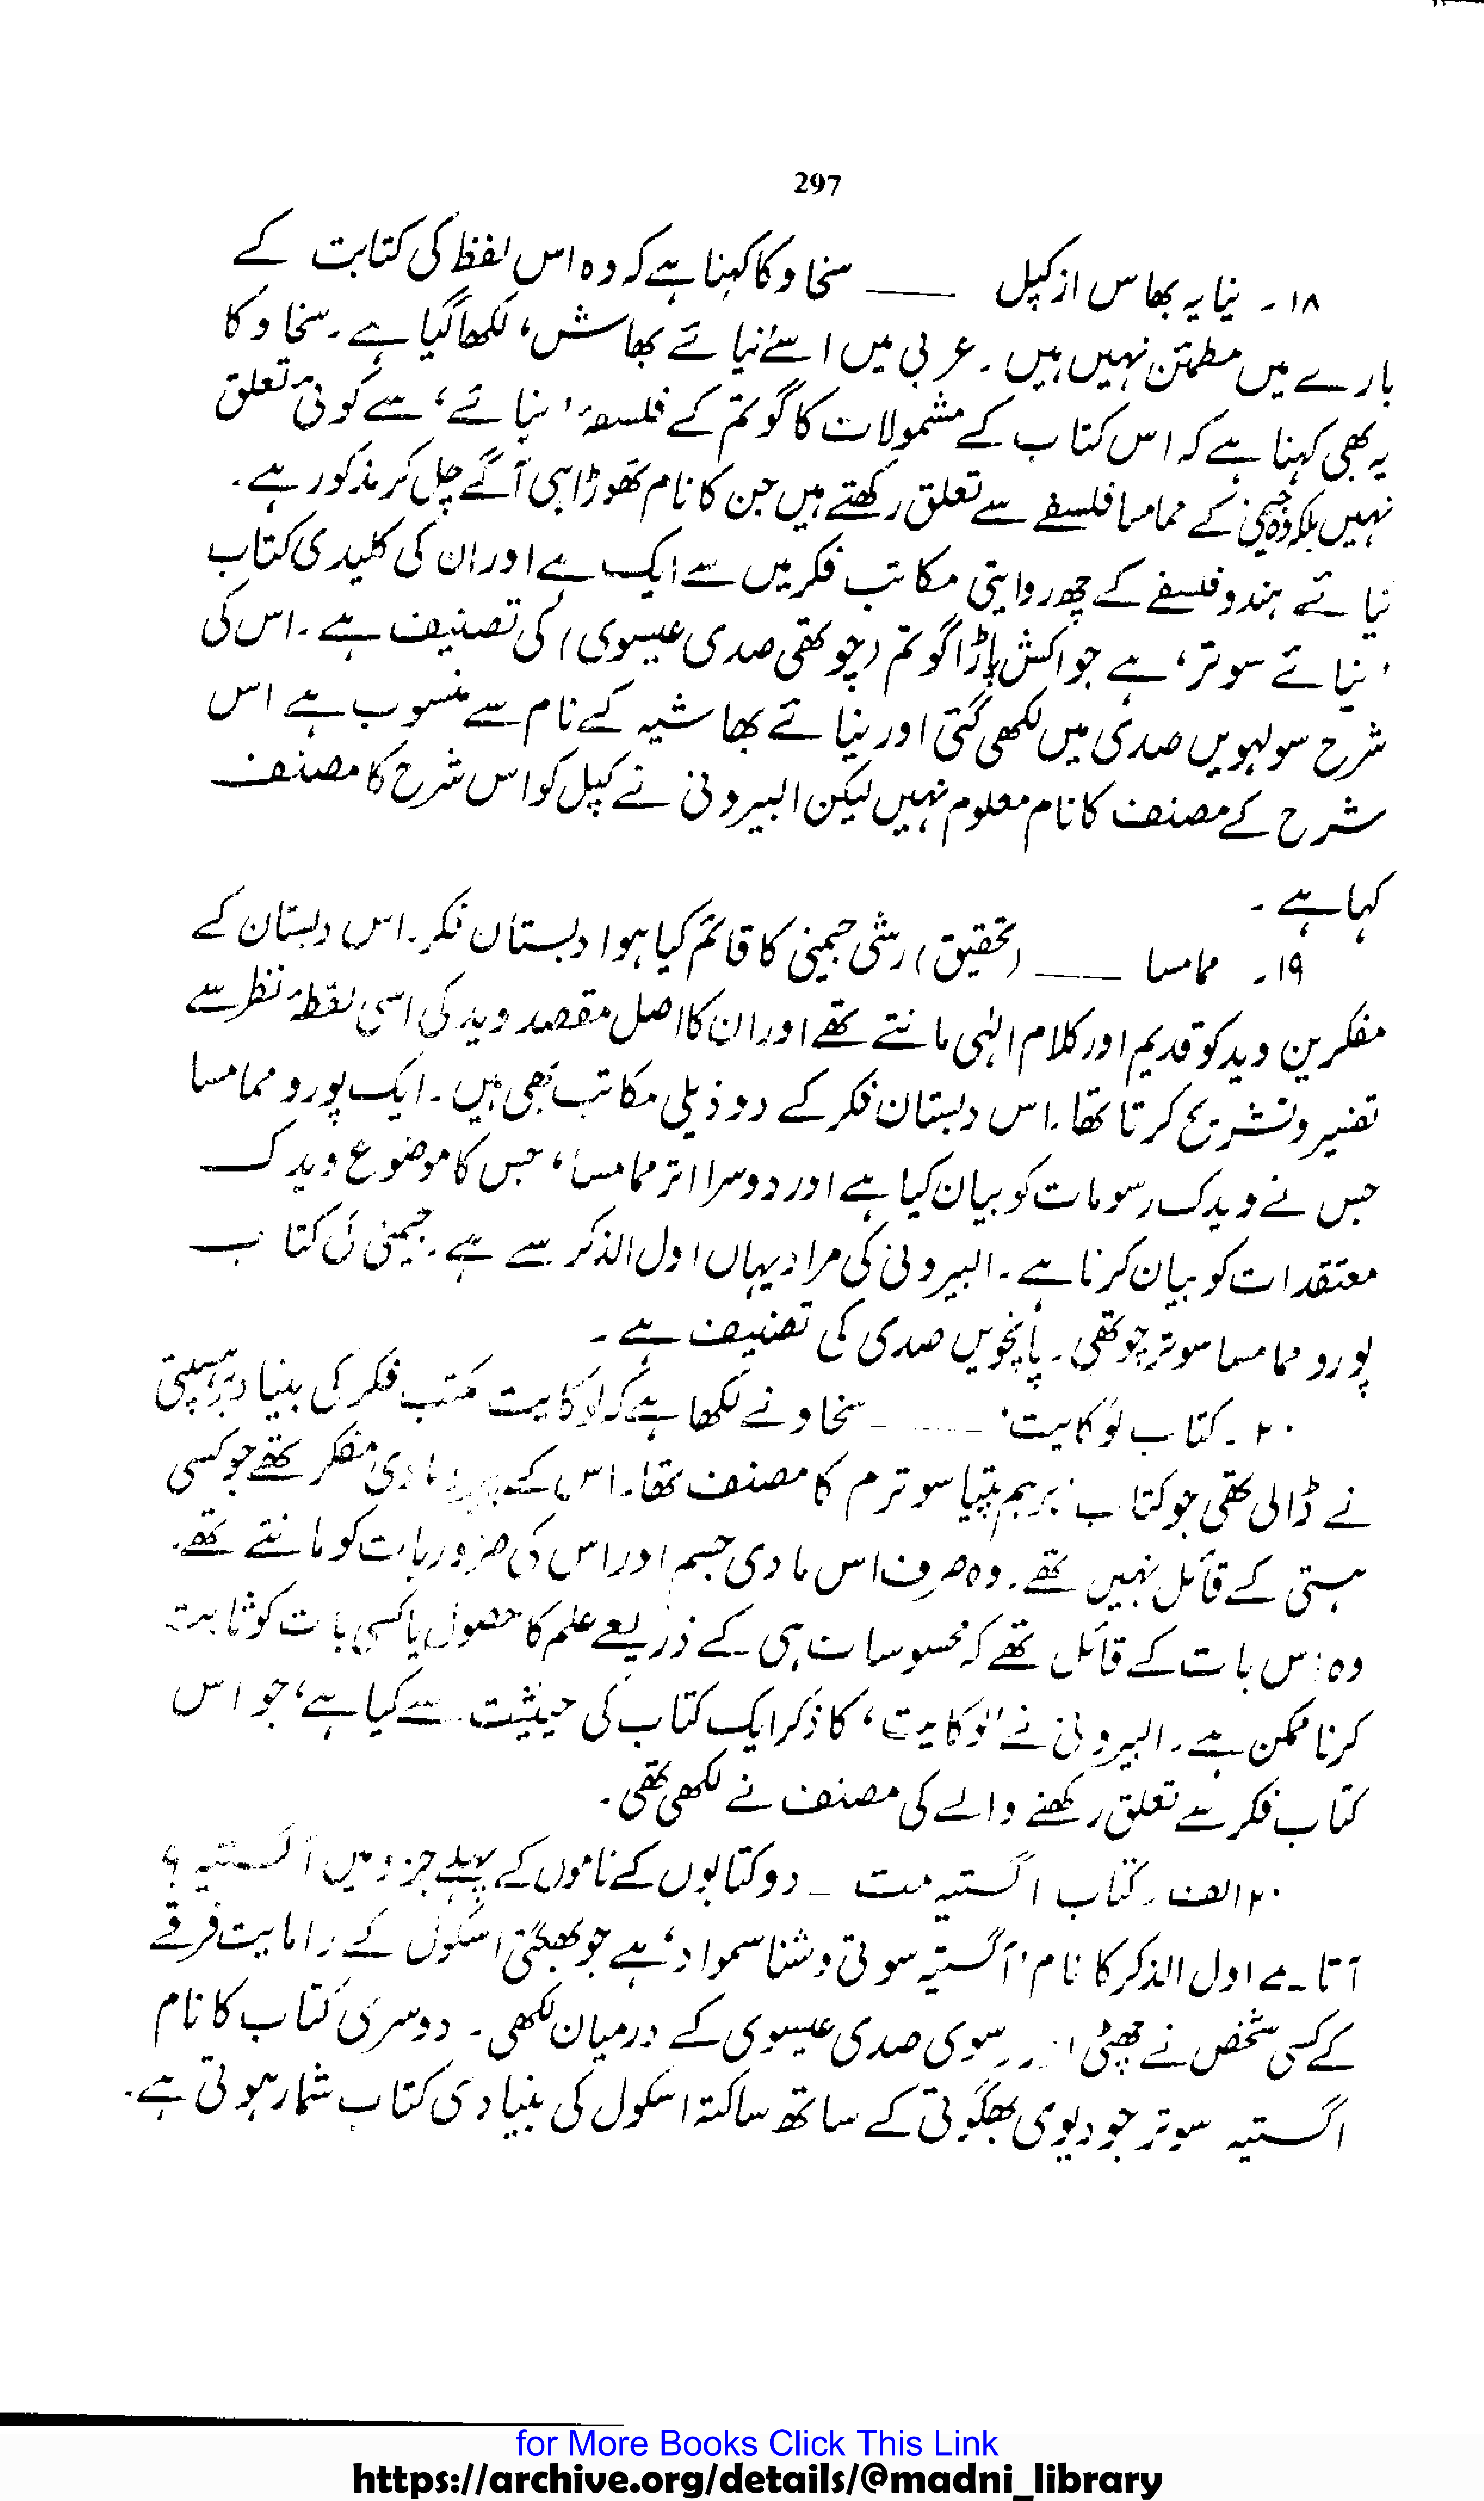 297
۱۸۔ نیایہ بھاس از کپل ——— سخاو کا کہنا ہے کہ وہ اس لفظ کی کتابت کے
بارے میں مطمئن نہیں ہیں۔ عربی میں اسے 'نیائے بھاش' لکھا گیا ہے۔ سخاو کا
یہ بھی کہنا ہے کہ اس کتاب کے مشمولات کا گوتم کے فلسفۂ 'نیائے' سے کوئی تعلق
نہیں بلکہ وہ جیمنی کے ممامسا فلسفے سے تعلق رکھتے ہیں جن کا نام تھوڑا ہی آگے چل کر مذکور ہے۔
نیائے ہندو فلسفے کے چھ روایتی مکاتب فکر میں سے ایک ہے اور ان کی کلیدی کتاب
'نیائے سوتر' ہے جو اکش پاڑا گوتم (چوتھی صدی عیسوی) کی تصنیف ہے۔ اس کی
شرح سولہویں صدی میں لکھی گئی اور نیائے بھاشیہ کے نام سے منسوب ہے اس
شرح کے مصنف کا نام معلوم نہیں لیکن البیرونی نے کپل کو اس شرح کا مصنف
کہا ہے۔
۱۹۔ ممامسا ——— (تحقیق) رشی جیمنی کا قائم کیا ہوا دبستان فکر۔ اس دبستان کے
مفکرین وید کو قدیم اور کلام الہٰی مانتے تھے اور ان کا اصل مقصد وید کی اسی نقطۂ نظر سے
تفسیر و تشریح کرتا تھا۔ اس دبستان فکر کے دو ذیلی مکاتب بھی ہیں۔ ایک پورو ممامسا
جس نے ویدک رسومات کو بیان کیا ہے اور دوسرا اتر ممامسا، جس کا موضوع ویدک
معتقدات کو بیان کرنا ہے۔ البیرونی کی مراد یہاں اول الذکر سے ہے۔ جیمنی کی کتاب
پورو ممامسا سوتر چوتھی۔ پانچویں صدی کی تصنیف ہے۔
۲۰۔ کتاب لوکایت' ——— سخاو نے لکھا ہے کہ لوکایت مکتب فکر کی بنیاد برہسپتی
نے ڈالی تھی جو کتاب 'برہم پتیا سوترم کا مصنف تھا۔ اس کے مادی مفکر تھے جو کسی
ہستی کے قائل نہیں تھے۔ وہ صرف اس مادی جسم اور اس کی ضروریات کو مانتے تھے۔
وہ اس بات کے قائل تھے کہ محسوسات ہی کے ذریعے علم کا حصول یا کسی بات کو ثابت
کرنا ممکن ہے۔ البیرونی نے 'لوکایت' کا ذکر ایک کتاب کی حیثیت سے کیا ہے، جو اس
کتاب فکر سے تعلق رکھنے والے کی مصنف نے لکھی تھی۔
۲۰ الف۔ کتاب اگستیہ مت ۔ دو کتابوں کے ناموں کے پہلے جزو میں اگستیہ؟
آتا ہے اول الذکر کا نام 'اگستیہ سوتی وشنا سمواد' ہے جو بھگتی اسکول کے رامایت فرقے
کے کسی شخص نے چھٹی سوی صدی عیسوی کے درمیان لکھی۔ دوسری کتاب کا نام
اگستیہ سوتر جو دیوی بھگوتی کے ساتھ ساکتہ اسکول کی بنیادی کتاب شمار ہوتی ہے۔
for More Books Click This Link
https://archive.org/details/@madni_library